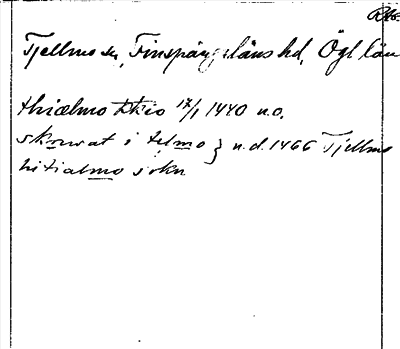 Rbr
Tjellmo sn, Finspånga läns hd, Ögl län
thiælmo kkio 17/1 1440 n.o.
skruwat i telmo } n.d. 1466 Tjellmo
hitialmo sokn